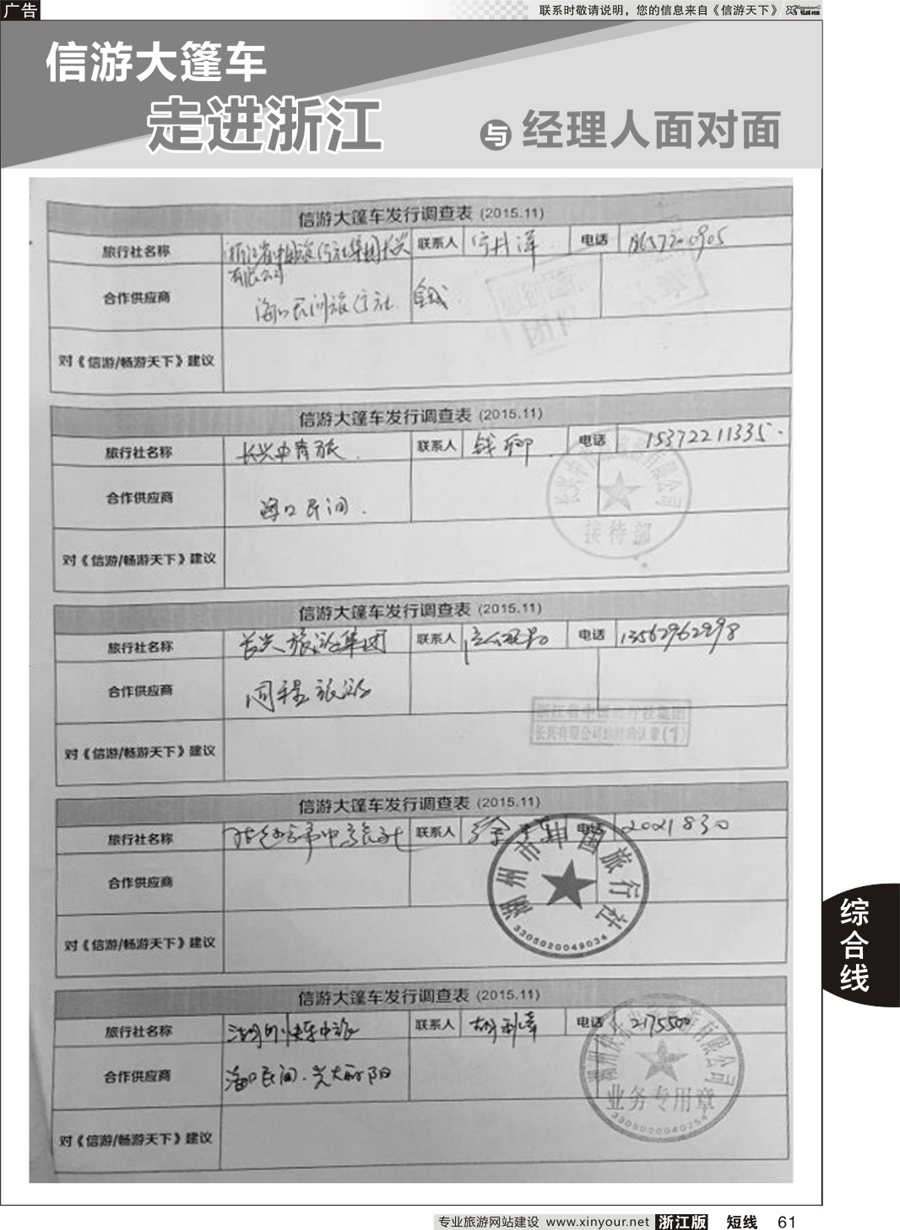 广告
联系时敬请说明，您的信息来自《信游天下》
信游大篷车
走进浙江
与经理人面对面
信游大篷车发行调查表 (2015.11)
旅行社名称 浙江省中国旅行社集团长兴有限公司 联系人 电话
合作供应商 海口民间旅行社
对《信游/畅游天下》建议
信游大篷车发行调查表 (2015.11)
旅行社名称 长兴中青旅 联系人 钱柳 电话 15372211335
合作供应商 海口民间
对《信游/畅游天下》建议
接待部
信游大篷车发行调查表 (2015.11)
旅行社名称 长兴旅游集团 联系人 电话 13562962298
合作供应商 同程旅游
对《信游/畅游天下》建议
浙江省中国旅行社集团
信游大篷车发行调查表 (2015.11)
旅行社名称 联系人 电话 2021830
合作供应商
对《信游/畅游天下》建议
湖州市中国旅行社
3305020049034
信游大篷车发行调查表 (2015.11)
旅行社名称 湖州快乐中旅 联系人 电话 2175500
合作供应商 海口民间
对《信游/畅游天下》建议
业务专用章
综合线
专业旅游网站建设 www.xinyour.net 浙江版 短线 61